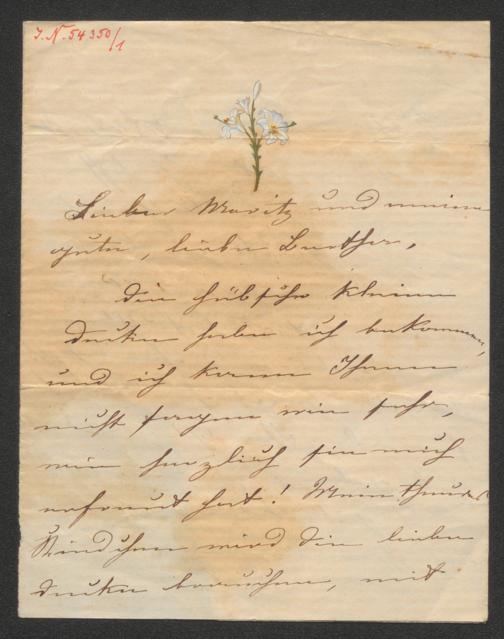 J.N. 54350/1
Lieber Moritz und meine
gute, liebe Berther,
die hübsche kleine
Decke habe ich bekommen,
und ich kann Ihnen
nicht sagen wie sehr,
wie herzlich sie mich
erfreut hat! Mein theures
Kindchen wird die liebe
Decke brauchen, mit